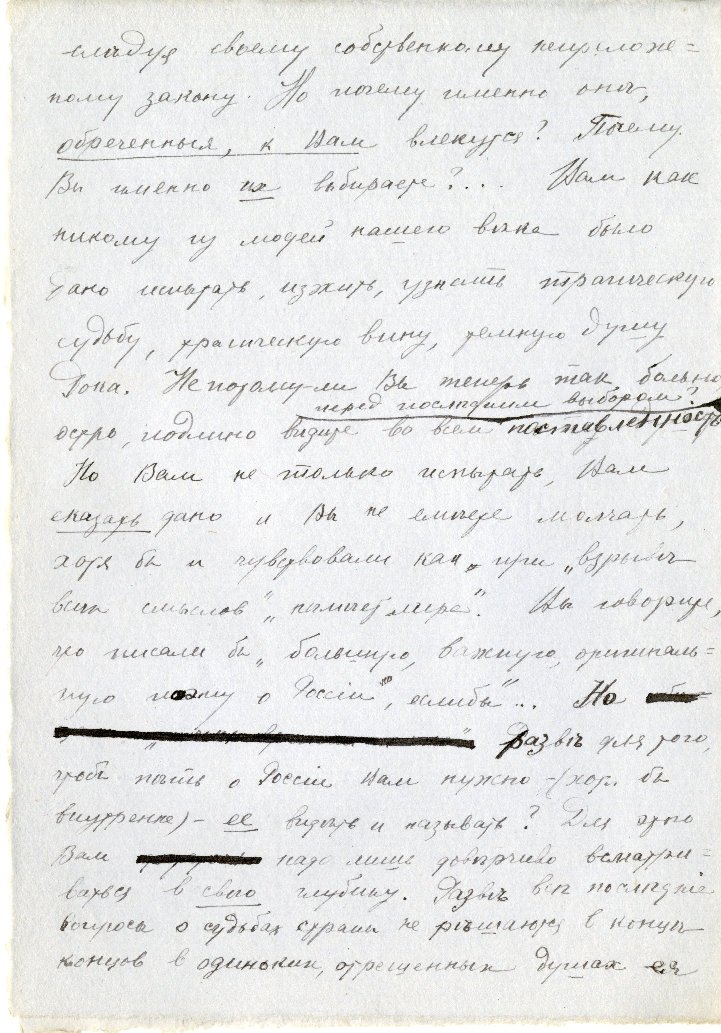 следуя своему собственному непрелож=
ному закону. Но почему именно онѣ,
обреченныя, к Вам влекутся? Почему
Вы именно их выбираете?... Вам как
никому из людей нашего вѣка было
дано испытать, изжить, узнать трагическую
судьбу, трагическую вину, темную душу
Рока. Не потому-ли Вы теперь так больно,
перед последним выбором?
остро, подлино видите во всем поставленность
Но Вам не только испытать, Вам
сказать дано и Вы не смѣете молчать,
хотя бы и чувствовали как при „взрывѣ
всѣх смыслов"
Вы говорите,
что писали бы „большую, важную, оригиналь=
ную поэму о Россіи", „если бы"... Но
Развѣ для того,
чтобы пѣть о Россіи Вам нужно –(хотя бы
внутренне)– ее видѣть и называть? Для этого
Вам надо лишь довѣрчиво всматри-
ваться в свою глубину. Развѣ всѣ послѣдніе
вопросы о судьбах страны не рѣшаются в концѣ
концов в одиноких, отрешенных душах ея